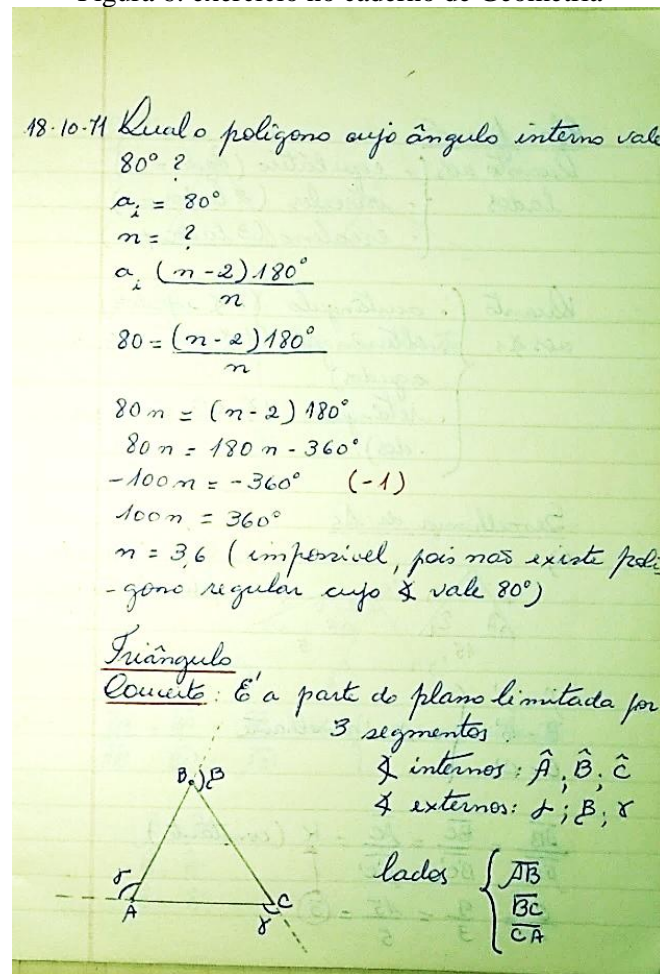 18-10-71 Qual o polígono cujo ângulo interno vale
80° ?
a_i = 80°
n = ?
a_i (n-2)180°
n
80 = (n-2)180°
n
80n = (n-2)180°
80n = 180n - 360°
-100n = -360° (-1)
100n = 360°
n = 3,6 (impossivel, pois não existe polí
-gono regular cujo ∢ vale 80°)
Triângulo
Conceito: É a parte do plano limitada por
3 segmentos.
∢ internos: Â; B̂; Ĉ
∢ externos: α; β; γ
B β
γ
A
C
γ
lados { AB
BC
CA